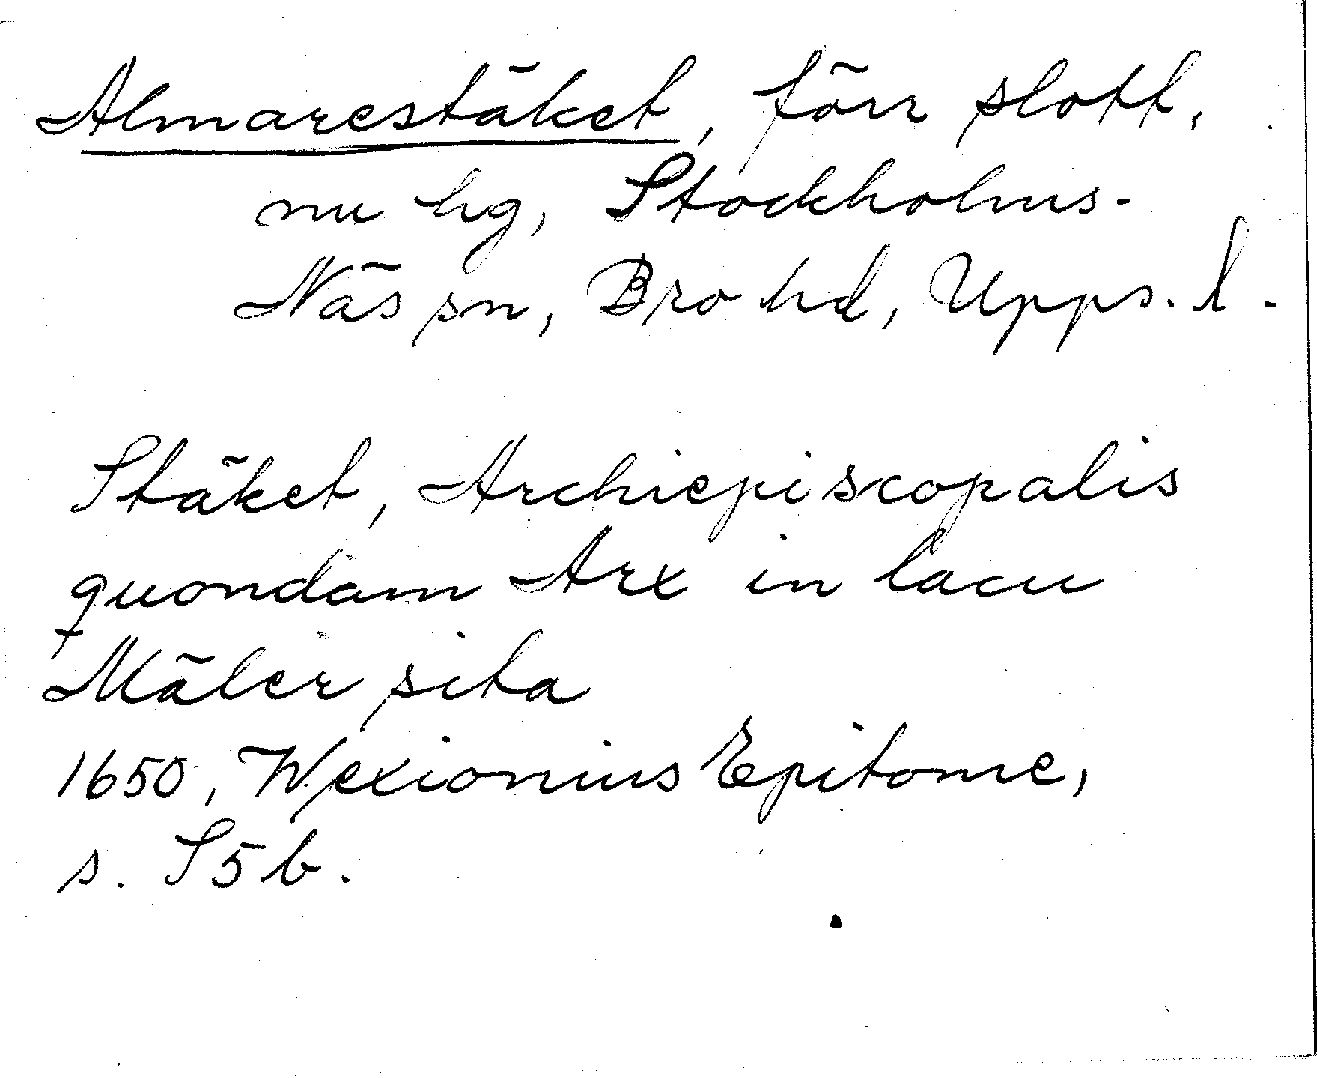 Almarestäket, förr slott,
nu hg, Stockholms-
Näs sn, Bro hd, Upps. l.
Stäket, Archiepiscopalis
quondam Arx in lacu
Mäler sita
1650, Wexionius Epitome,
s. S5b.